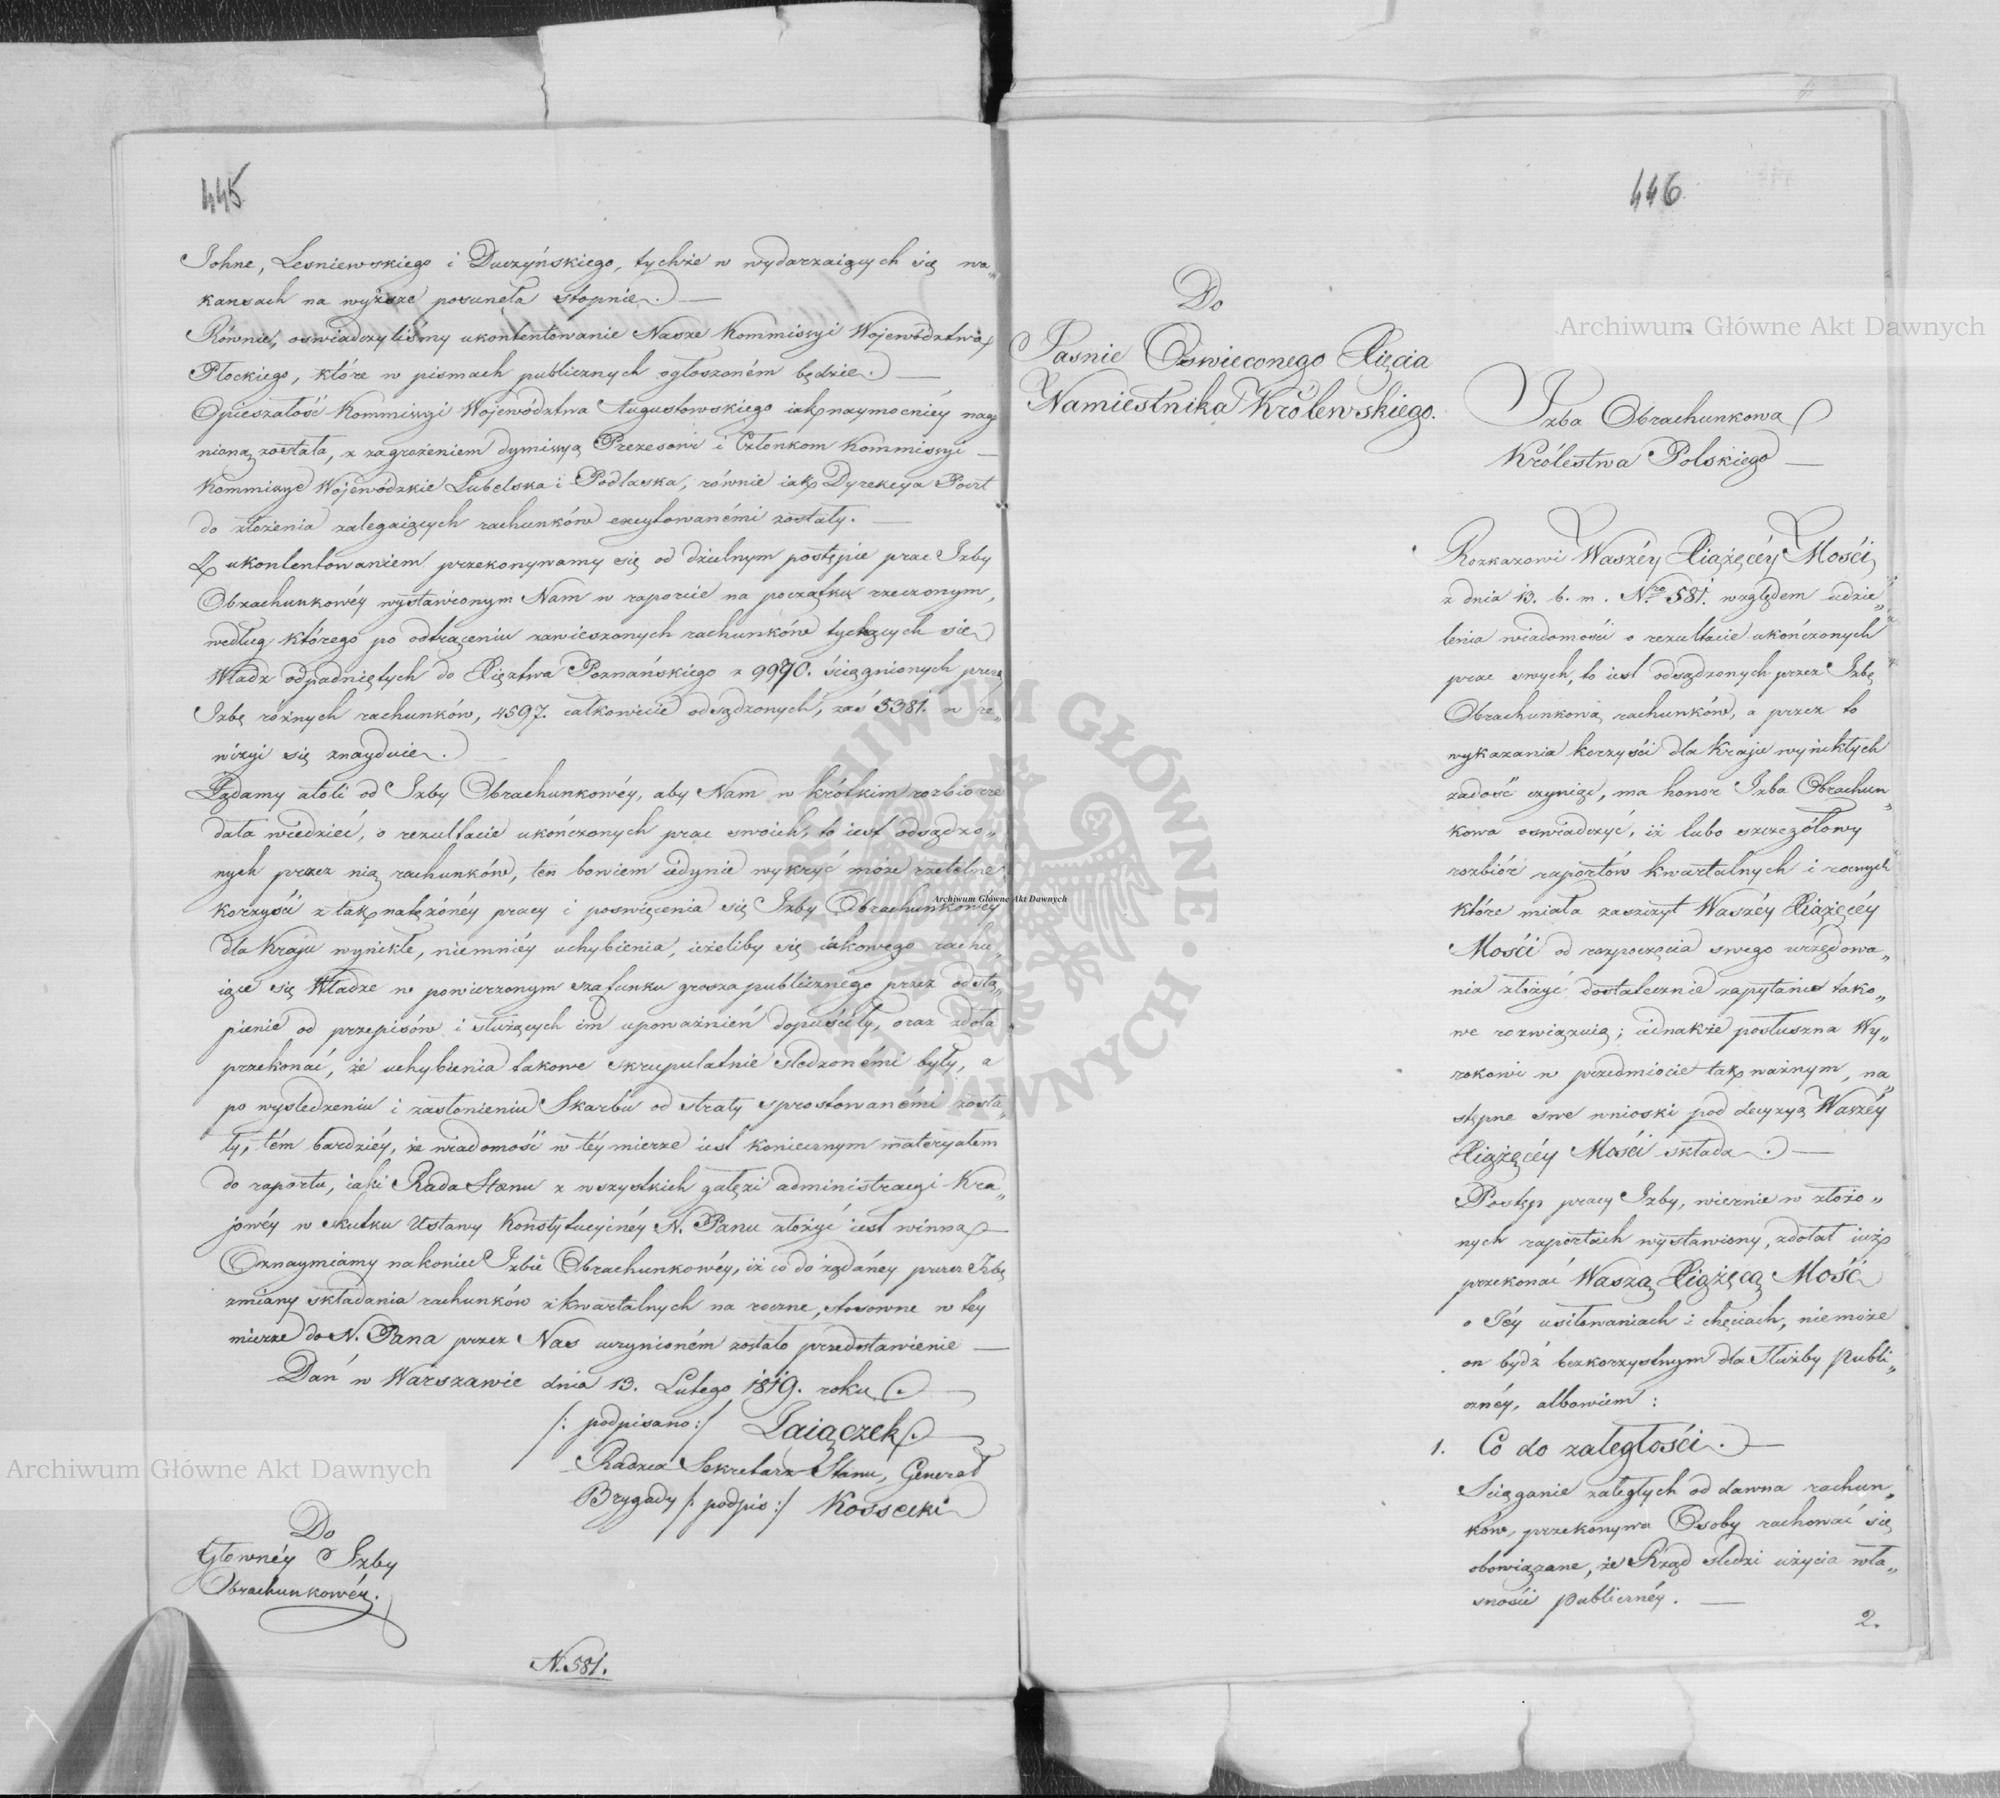 445
Johne, Lesniewskiego i Duczyńskiego, tychże w wydarzaiących się wa„
kansach na wyższe posunęła stopnie. —
Równie, oswiadczyliśmy ukontentowanie Nasze Kommissyi Województwa
Płockiego, które w pismach publicznych ogłoszoném będzie. —
Opieszałość Kommissyi Województwa Augustowskiego iak naymocniéy nag„
nioną została, z zagrożeniem dymissyą Prezesowi i Członkom Kommissyi —
Kommissye Wojewódzkie Lubelska i Podlaska, równie iak Dyrekcya Poczt
do złożenia zalegaiących rachunków excytowanémi zostały. —
Z ukontentowaniem przekonywamy się od dzielnym postępie prac Izby
Obrachunkowéy wystawionym Nam w raporcie na początku rzeczonym,
według którego po odtrąceniu zawieszonych rachunków tyczących się
Władz odpadniętych do Xięztwa Poznańskiego z 9970. ściągnionych przez
Izbę rożnych rachunków, 4597. całkowicie odsądzonych, zaś 5381. w re„
wizyi się znayduie. —
Żądamy atoli od Izby Obrachunkowéy, aby Nam w krótkim rozbiorze
dała wiedzieć, o rezultacie ukończonych prac swoich, to iest odsądzo„
nych przez nią rachunków, ten bowiem iedynie wykryć może rzetelne
korzyści z tak natężonéy pracy i poswięcenia się Izby Obrachunkowéy
dla Kraju wynikłe, niemniéy uchybienia, ieżeliby się iakowego rachu„
iące się Władze w powierzonym szafunku grosza publicznégo przez odstą„
pienie od przepisów i służących im upoważnień dopuściły, oraz zdoła
przekonać, że uchybienia takowe skrupulatnie sledzonémi były, a
po wysledzeniu i zasłonieniu Skarbu od straty sprostowanémi zosta„
ły, tém bardziéy, że wiadomość w téy mierze iest koniecznym materyałem
do raportu, iaki Rada Stanu z wszystkich gałęzi administracyi Kra„
jowéy w skutku Ustawy Konstytucyinéy N. Panu złożyć iest winna —
Oznaymiamy nakoniec Izbie Obrachunkowéy, iż co do żądanéy przez Izbę
zmiany składania rachunków z kwartalnych na roczne, stosowne w tey
mierze do N. Pana przez Nas uczynioném zostało przedstawienie —
Dań w Warszawie dnia 13. Lutego 1819. roku. —
/: podpisano :/ Zaiączek. —
Radzca Sekretarz Stanu, Generał
Brygady /: podpis :/ Kossecki
Do
Głownéy Izby
Obrachunkowéy.
N. 581.
446
Do
Jasnie Oswieconego Xięcia
Namiestnika Królewskiego.
Izba Obrachunkowa
Królestwa Polskiego —
Rozkazowi Waszéy Xiążęcéy Mości,
z dnia 13. b. m. Nro 581. względem udzie„
lenia wiadomości o rezultacie ukończonych
prac swych, to iest odsądzonych przez Izbę
Obrachunkową rachunków, a przez to
wykazania korzyści dla Kraju wynikłych
zadość czyniąc, ma honor Izba Obrachun„
kowa oswiadczyć, iż lubo szczegółowy
rozbiór raportów kwartalnych i rocznych
które miała zaszczyt Waszéy Xiążęcéy
Mości od rozpoczęcia swego urzędowa„
nia złożyć dostatecznie zapytanie tako„
we rozwiązuią; iednakże posłuszna Wy„
rokowi w przedmiocie tak ważnym, na„
stępne swe wnioski pod decyzyą Waszéy
Xiążęcéy Mości składa. —
Postęp pracy Izby, wiernie w złożo„
nych raportach wystawiony, zdołał iuż
przekonać Waszą Xiążęcą Mość
o Jéy usiłowaniach i chęciach, niemoże
on bydź bezkorzystnym dla Służby Publi„
cznéy, albowiem :
1. Co do zaległości. —
Sciąganie zaległych od dawna rachun„
ków, przekonywa Osoby rachować się
obowiązane, że Rząd sledzi użycia wła„
sności publicznéy. —
2.
Archiwum Główne Akt Dawnych
Archiwum Główne Akt Dawnych
Archiwum Główne Akt Dawnych
ARCHIWUM GŁÓWNE AKT DAWNYCH